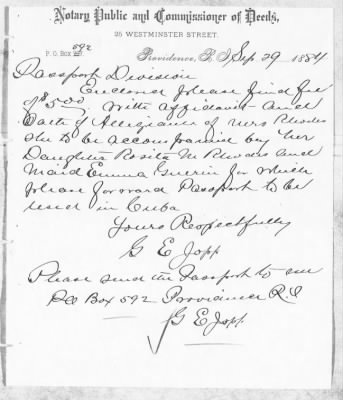 Notary Public and Commissioner of Deeds,
25 WESTMINSTER STREET.
592
P. O. BOX
Providence, R. I. Sep 29 1884
Passport Division
Enclosed please find fee
of $5.00 with affidavit and
Oath of Allegiance of Mrs Rhodes
She to be accompanied by her
Daughter Rosita M Rhodes and
Maid Emma Guerin for which
please forward Passport to be
used in Cuba
Yours Respectfully
G E Jopp
Please send the Passport to me
PO Box 592 Providence R.I
G E Jopp